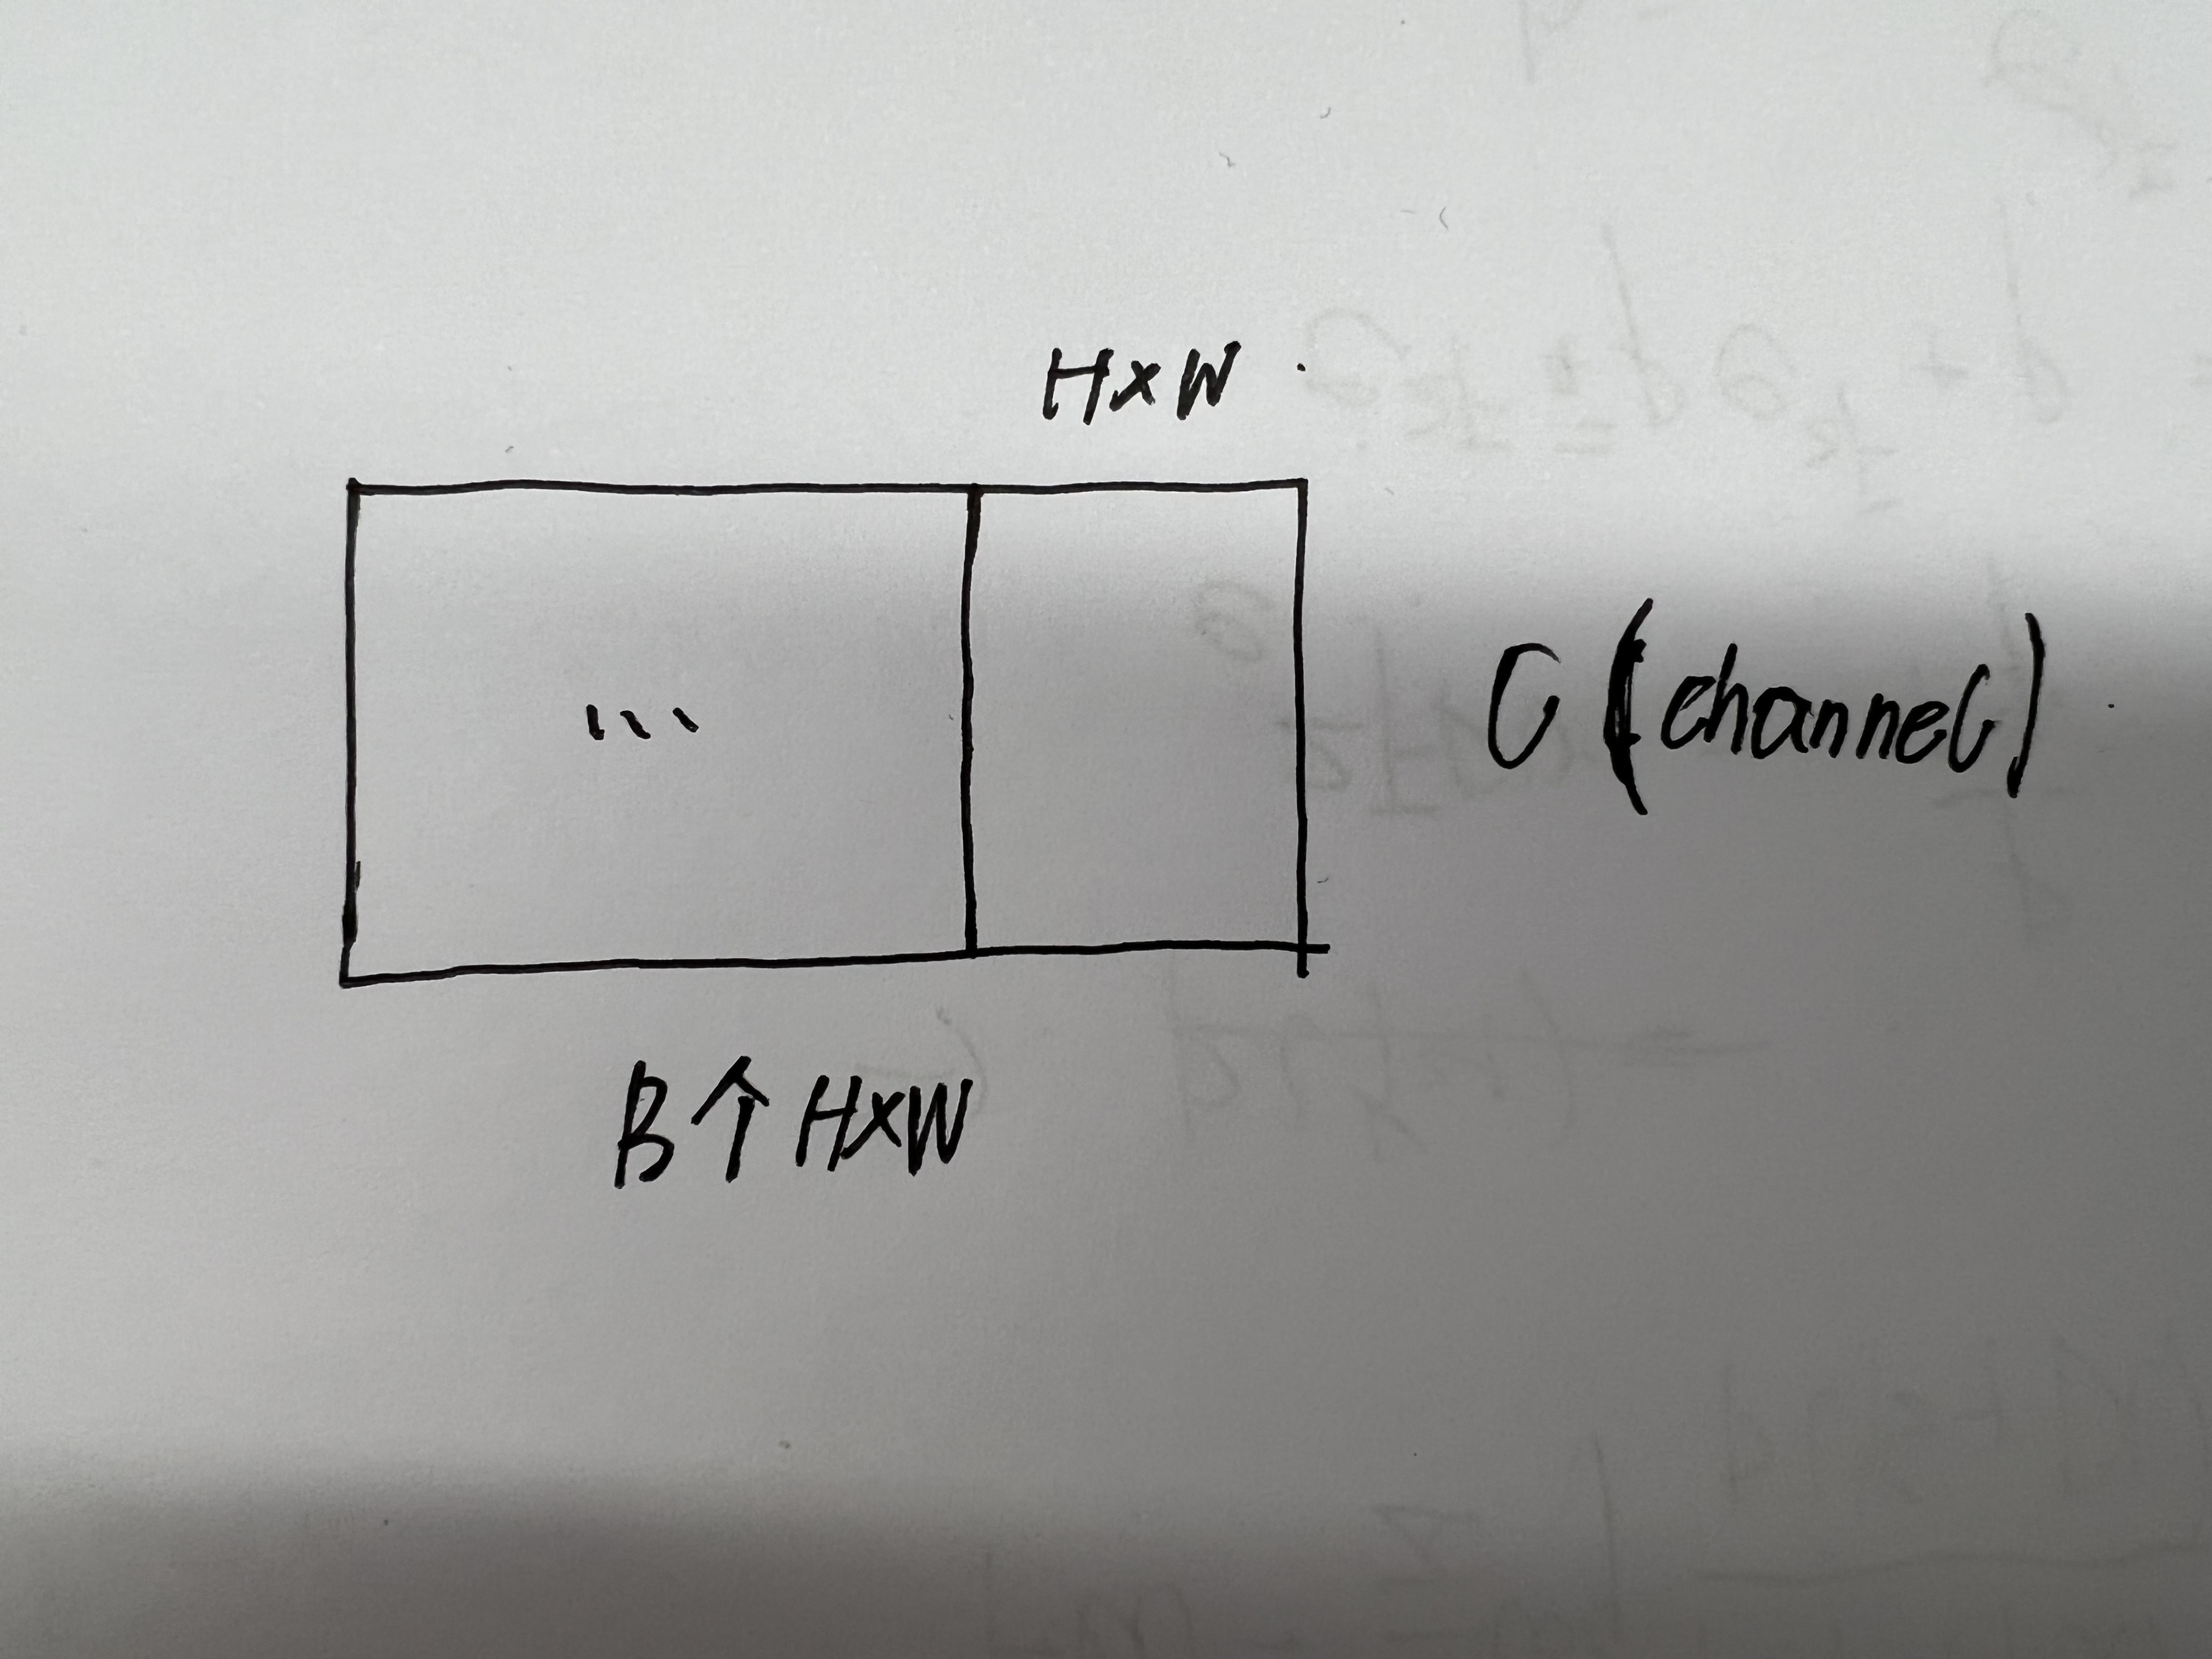 H×W
...
C (channel)
B个 H×W